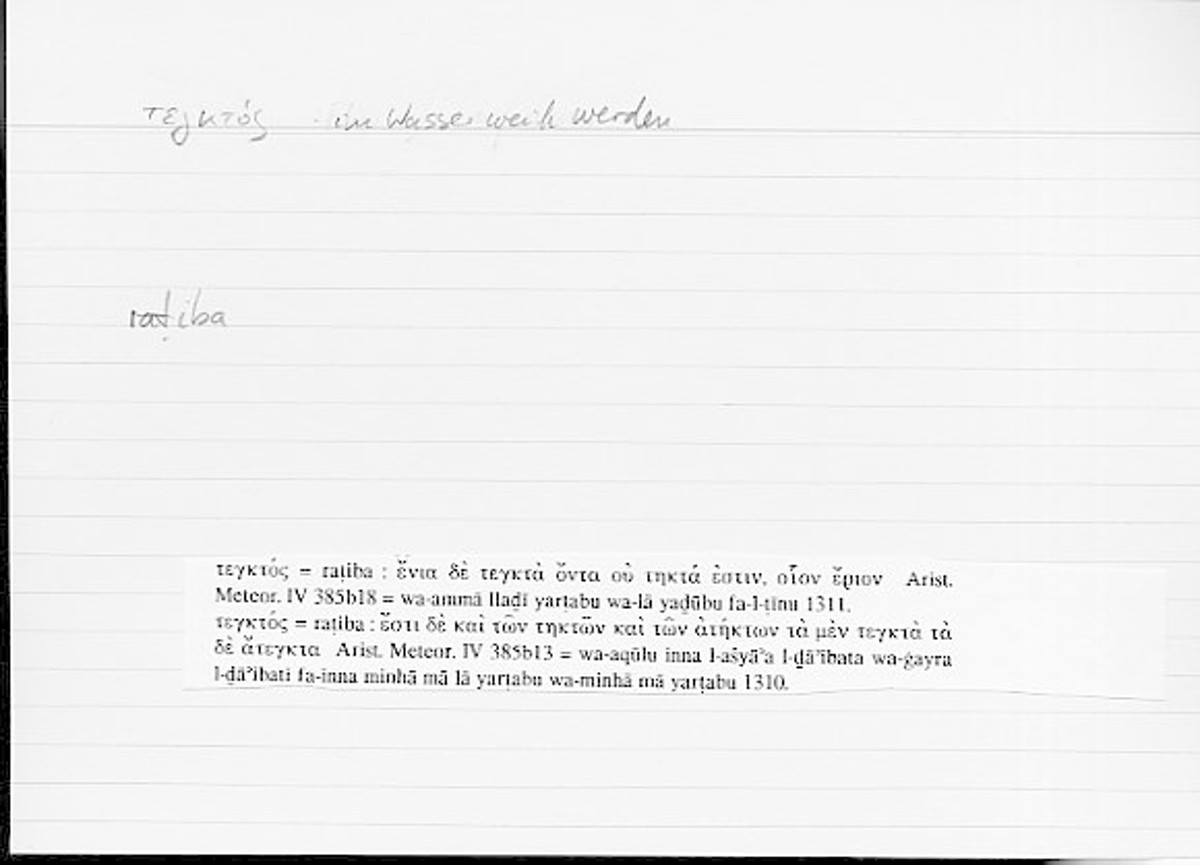 τεγκτός im Wasser weich werden
raṭiba
τεγκτός = raṭiba : ἔνια δὲ τεγκτὰ ὄντα οὐ τηκτά ἐστιν, οἷον ἔριον Arist.
Meteor. IV 385b18 = wa-ammā lladī yarṭabu wa-lā yaḏūbu fa-l-ṭīnu 1311.
τεγκτός = raṭiba : ἔστι δὲ καὶ τῶν τηκτῶν καὶ τῶν ἀτήκτων τὰ μὲν τεγκτὰ τὰ
δὲ ἄτεγκτα Arist. Meteor. IV 385b13 = wa-aqūlu inna l-ašyāʾa l-ḏāʾibata wa-ġayra
l-ḏāʾibati fa-inna minhā mā lā yarṭabu wa-minhā mā yarṭabu 1310.